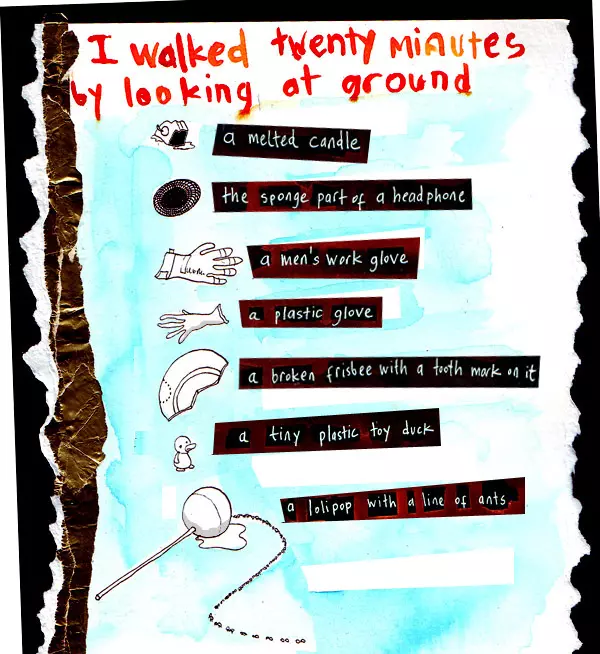 I walked twenty minutes
by looking at ground
a melted candle
the sponge part of a headphone
a men's work glove
a plastic glove
a broken frisbee with a tooth mark on it
a tiny plastic toy duck
a lolipop with a line of ants.